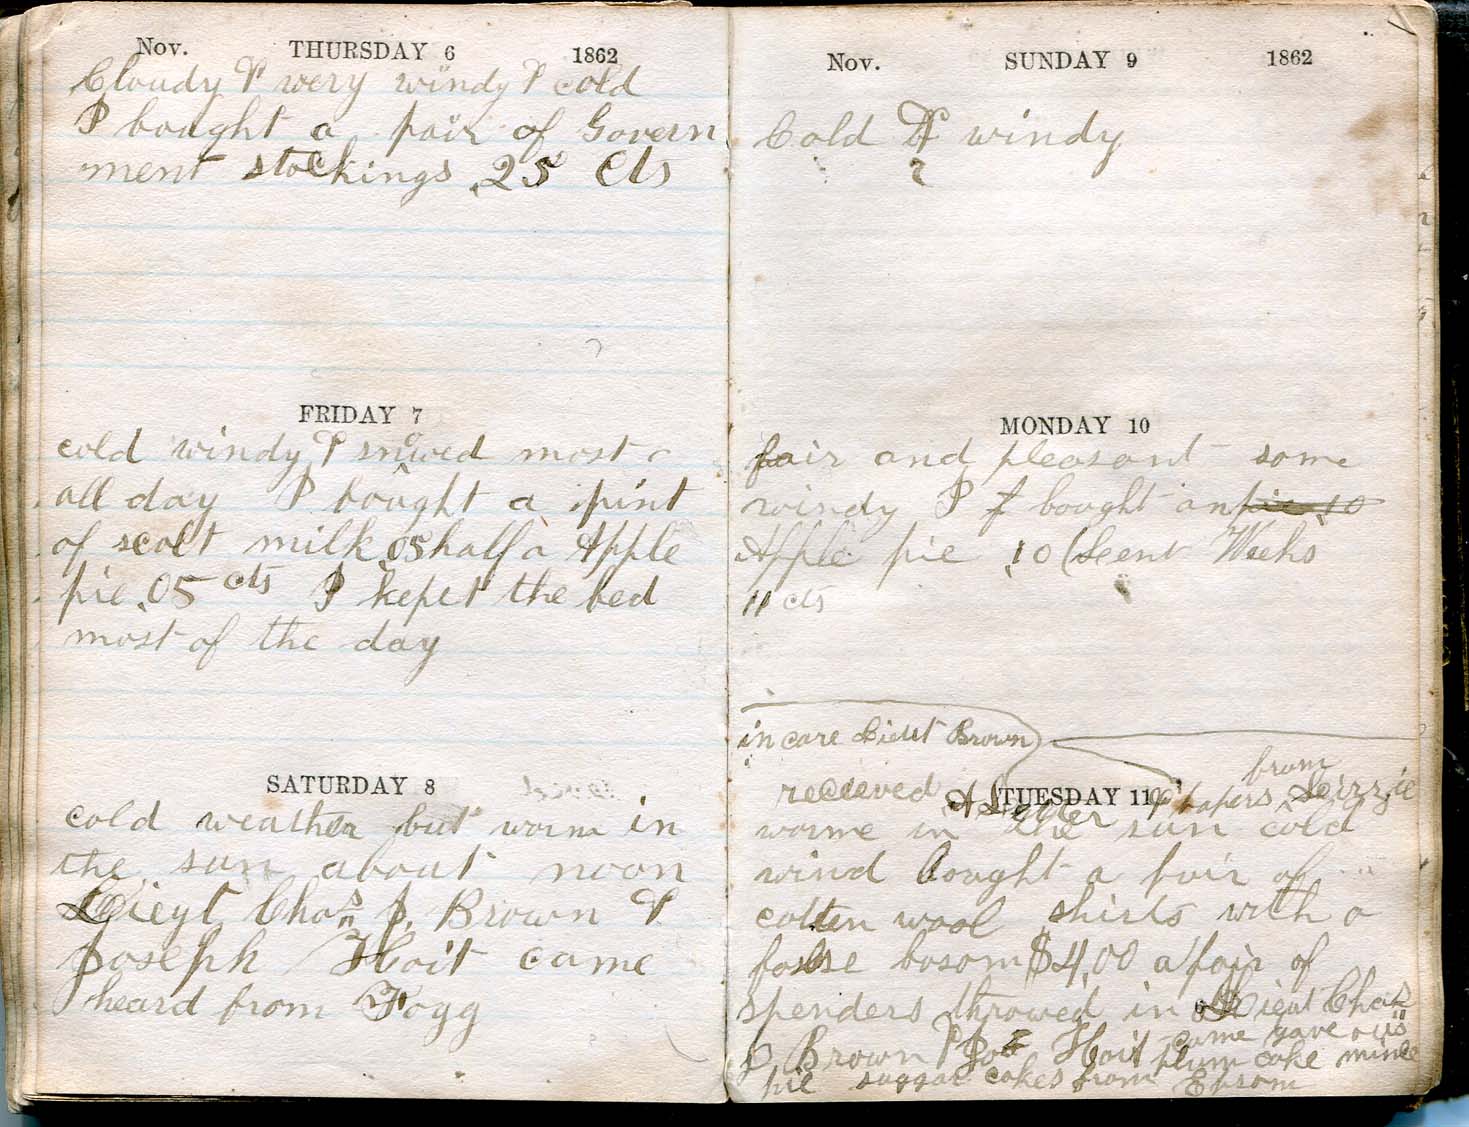 Nov. THURSDAY 6 1862
Cloudy & very windy & cold
I bought a pair of Govern
ment stockings .25 Cts
FRIDAY 7
cold windy & snowed most
all day I bought a pint
of scolt milk .05 half a Apple
pie .05 cts I kepet the bed
most of the day
SATURDAY 8
cold weather but worm in
the sun about noon
Lieyt Chas J. Brown &
Joseph Hoit came
I heard from Fogg
Nov. SUNDAY 9 1862
Cold & windy
MONDAY 10
fair and pleasant some
windy & I bought an pie 10
Apple pie .10 (Seent Weeks
11 cts
in care Lieut Brown)
recieved A Letter & papers from Leizzie
TUESDAY 11
worme in the sun cold
wind bought a pair of
cotten wool shirts with a
foalse bosom $4,00 a pair of
spenders throwed in Lieut Chas
J Brown & Joe Hoit came gave us
plum cake mince
pie suggar cakes from Epsom